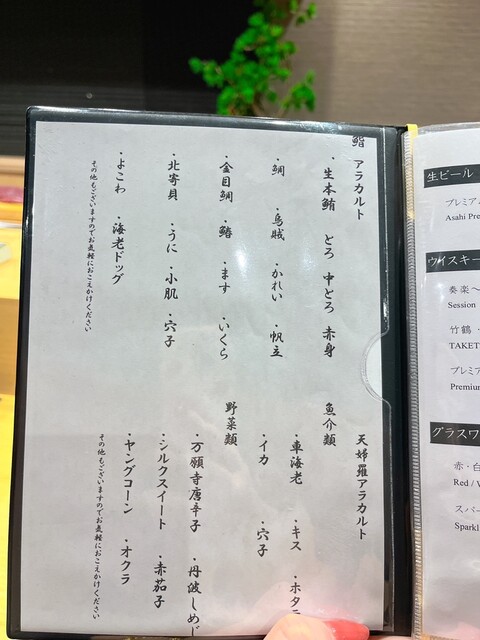 鮨 アラカルト
・生本鮪 とろ 中とろ 赤身
・鯛 ・烏賊 ・かれい ・帆立
・金目鯛 ・鰆 ・ます ・いくら
・北寄貝 ・うに ・小肌 ・穴子
・よこわ ・海老ドッグ
その他もございますのでお気軽におこえかけください
天婦羅アラカルト
魚介類
・車海老 ・キス ・ホタ
・イカ ・穴子
野菜類
・万願寺唐辛子 ・丹波しめじ
・シルクスイート ・赤茄子
・ヤングコーン ・オクラ
その他もございますのでお気軽におこえかけください
生ビール
プレミア
Asahi Pre
ウイスキー
奏楽〜
Session
竹鶴
TAKET
プレミア
Premium
グラスワ
赤・白
Red / V
スパー
Sparkl